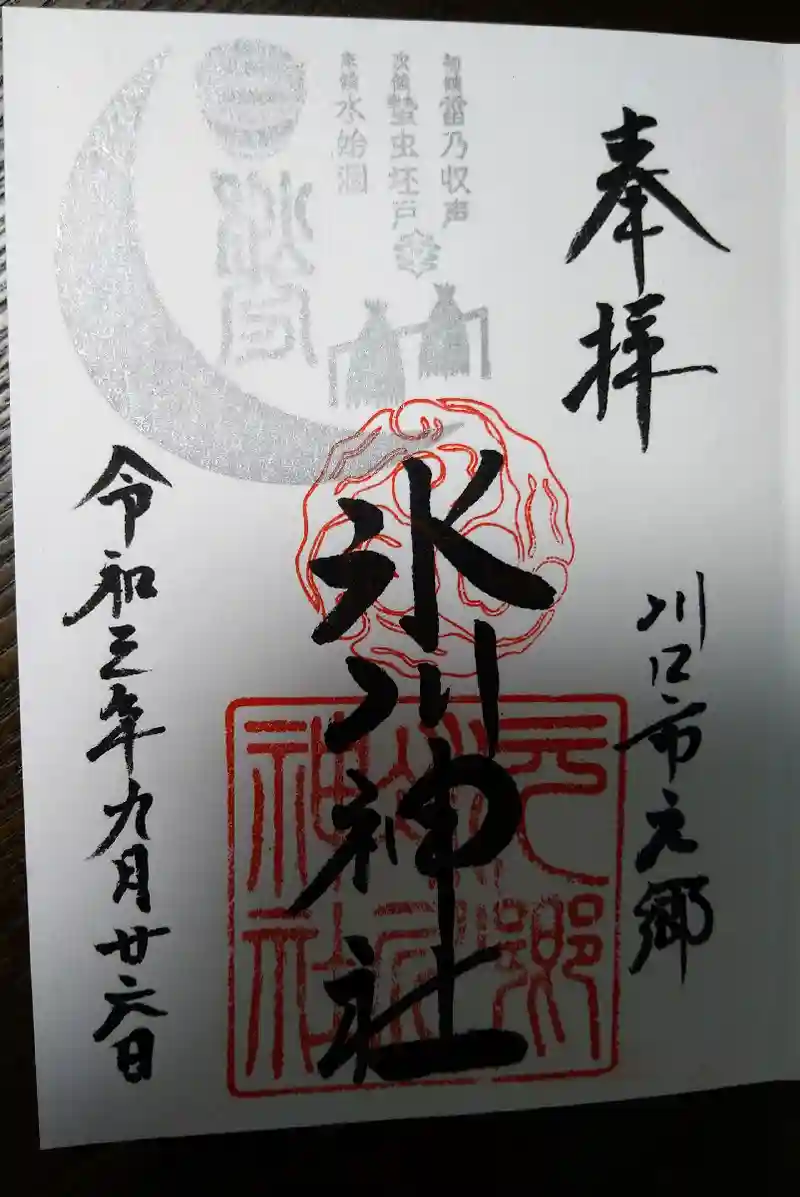 奉拝
川口市元郷
初候 雷乃収声
次候 蟄虫坏戸
末候 水始涸
氷川神社
元郷氷川神社
令和三年九月廿六日